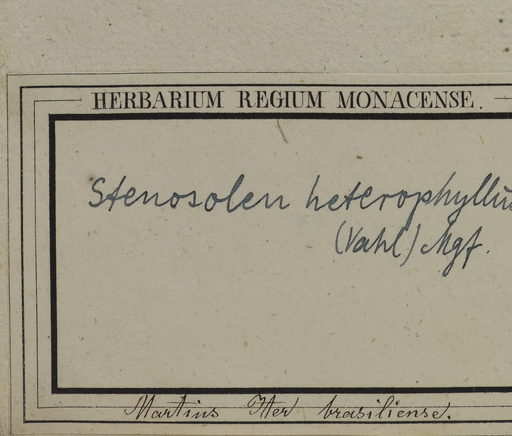 HERBARIUM REGIUM MONACENSE.
Stenosolen heterophyllus
(Vahl) Mgf.
Martius Iter brasiliense.